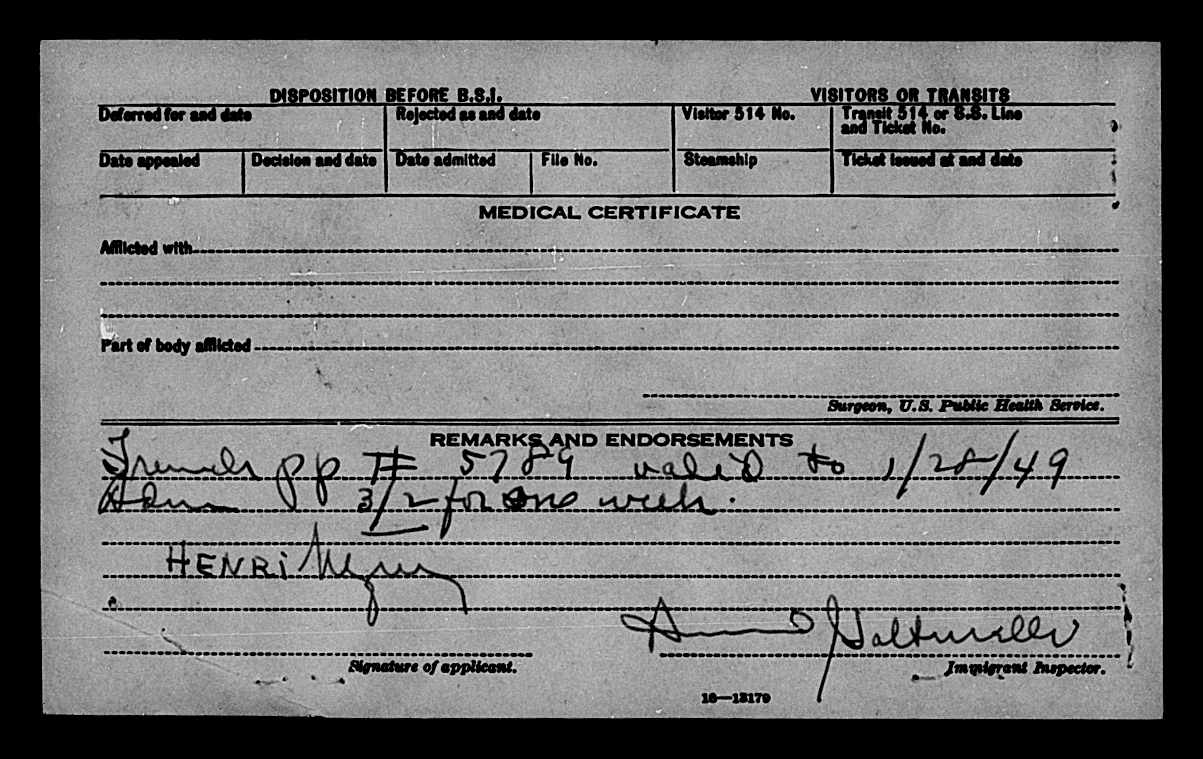 DISPOSITION BEFORE B.S.I. VISITORS OR TRANSITS
Deferred for and date Rejected as and date Visitor 514 No. Transit 514 or S.S. Line and Ticket No.
Date appealed Decision and date Date admitted File No. Steamship Ticket issued at and date
MEDICAL CERTIFICATE
Afflicted with
Part of body afflicted
Surgeon, U.S. Public Health Service.
REMARKS AND ENDORSEMENTS
French pp # 5789 valid to 1/28/49
Adm 3/2 for one week.
HENRI
Signature of applicant. Immigrant Inspector.
16—13179